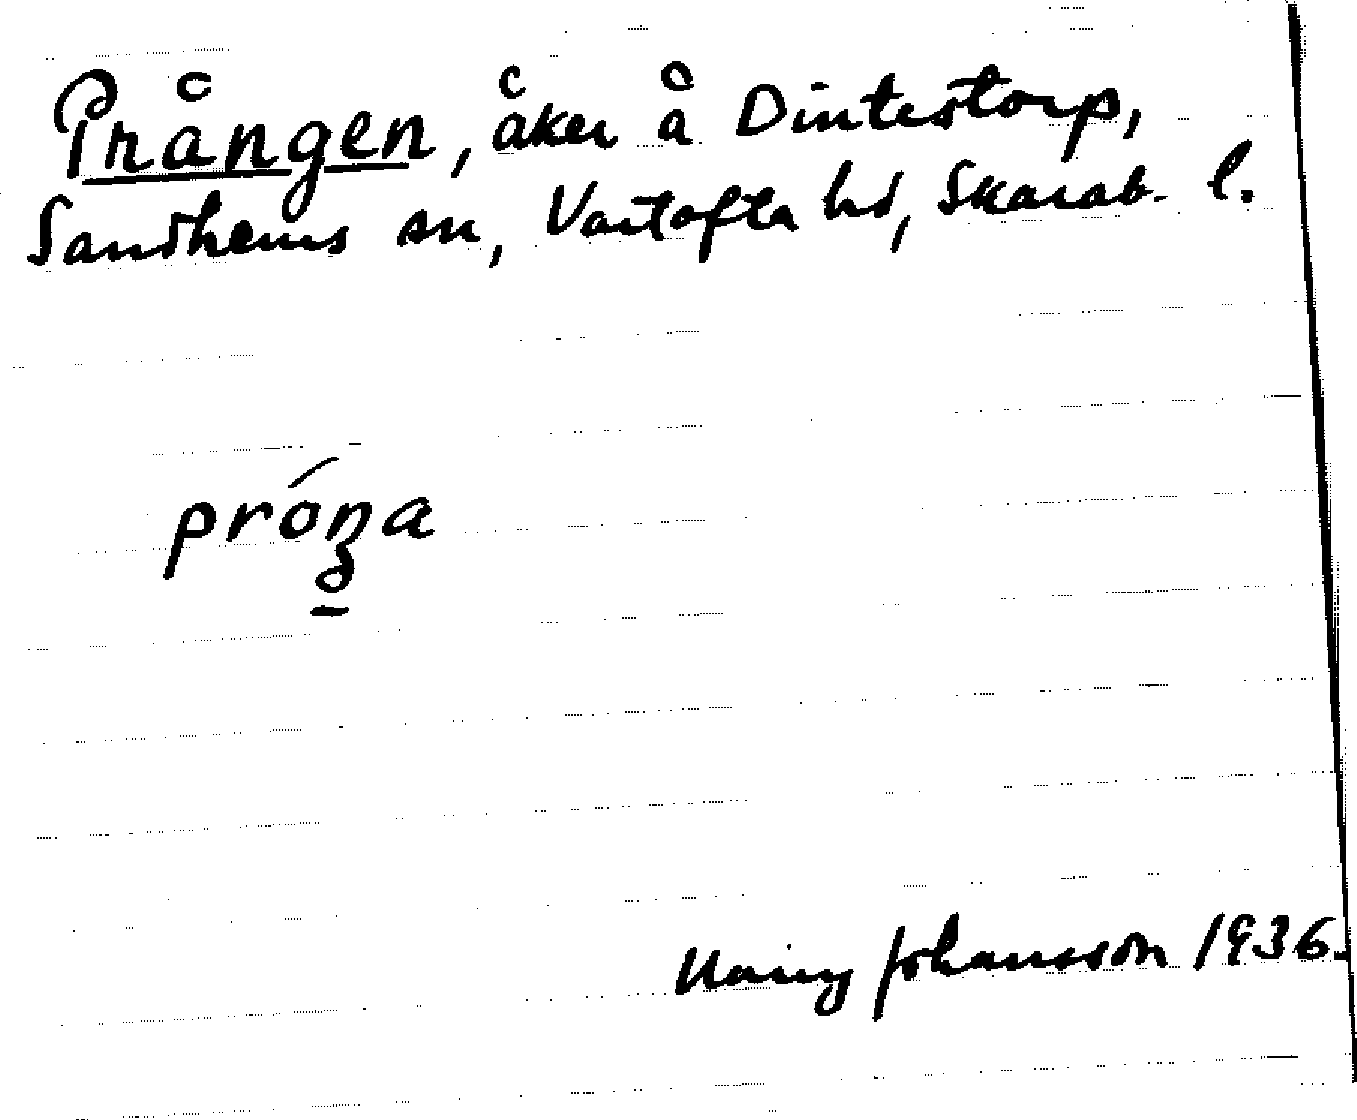 Prången, åker å Dintestorp,
Sandhems sn, Vartofta hd, Skarab. l.
próŋa
Johansson 1936.